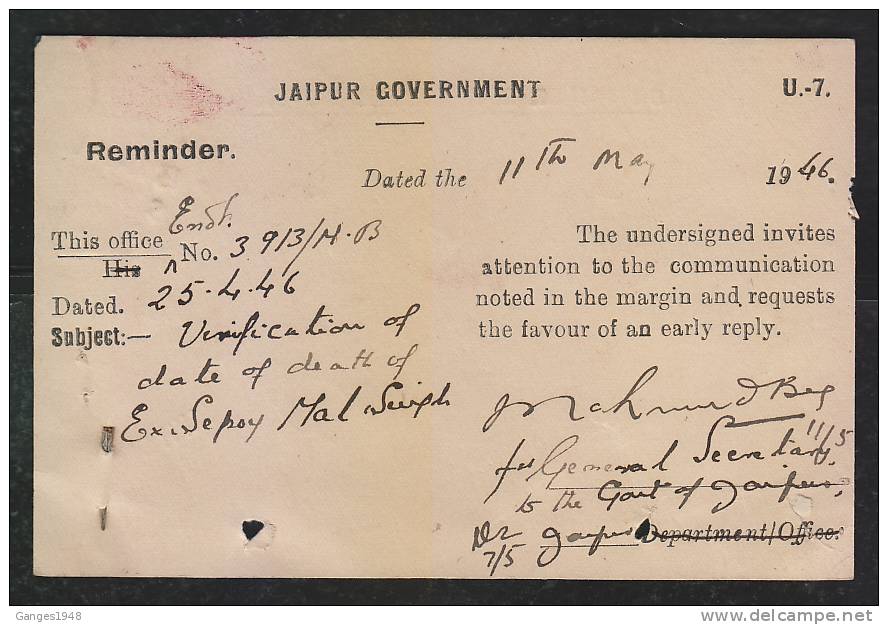 JAIPUR GOVERNMENT
U.-7.
Reminder.
Dated the 11Th May 1946.
Endt.
This office No. 3913/H.B
His ^
Dated. 25.4.46
Subject:— Verification of
date of death of
Ex. Sepoy Mal Singh
The undersigned invites
attention to the communication
noted in the margin and requests
the favour of an early reply.
Mahmud Beg
11/5
for General Secretary
to the Govt of Jaipur,
Jaipur Department/Office.
7/5
Ganges1948
www.delcampe.net